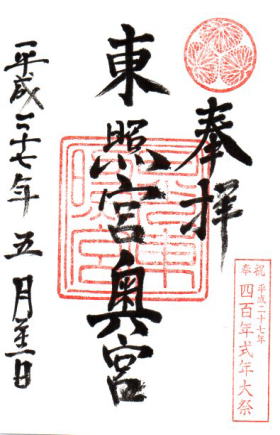 奉拝
東照宮奥宮
平成二十七年五月三十一日
奉祝 平成二十七年
四百年式年大祭